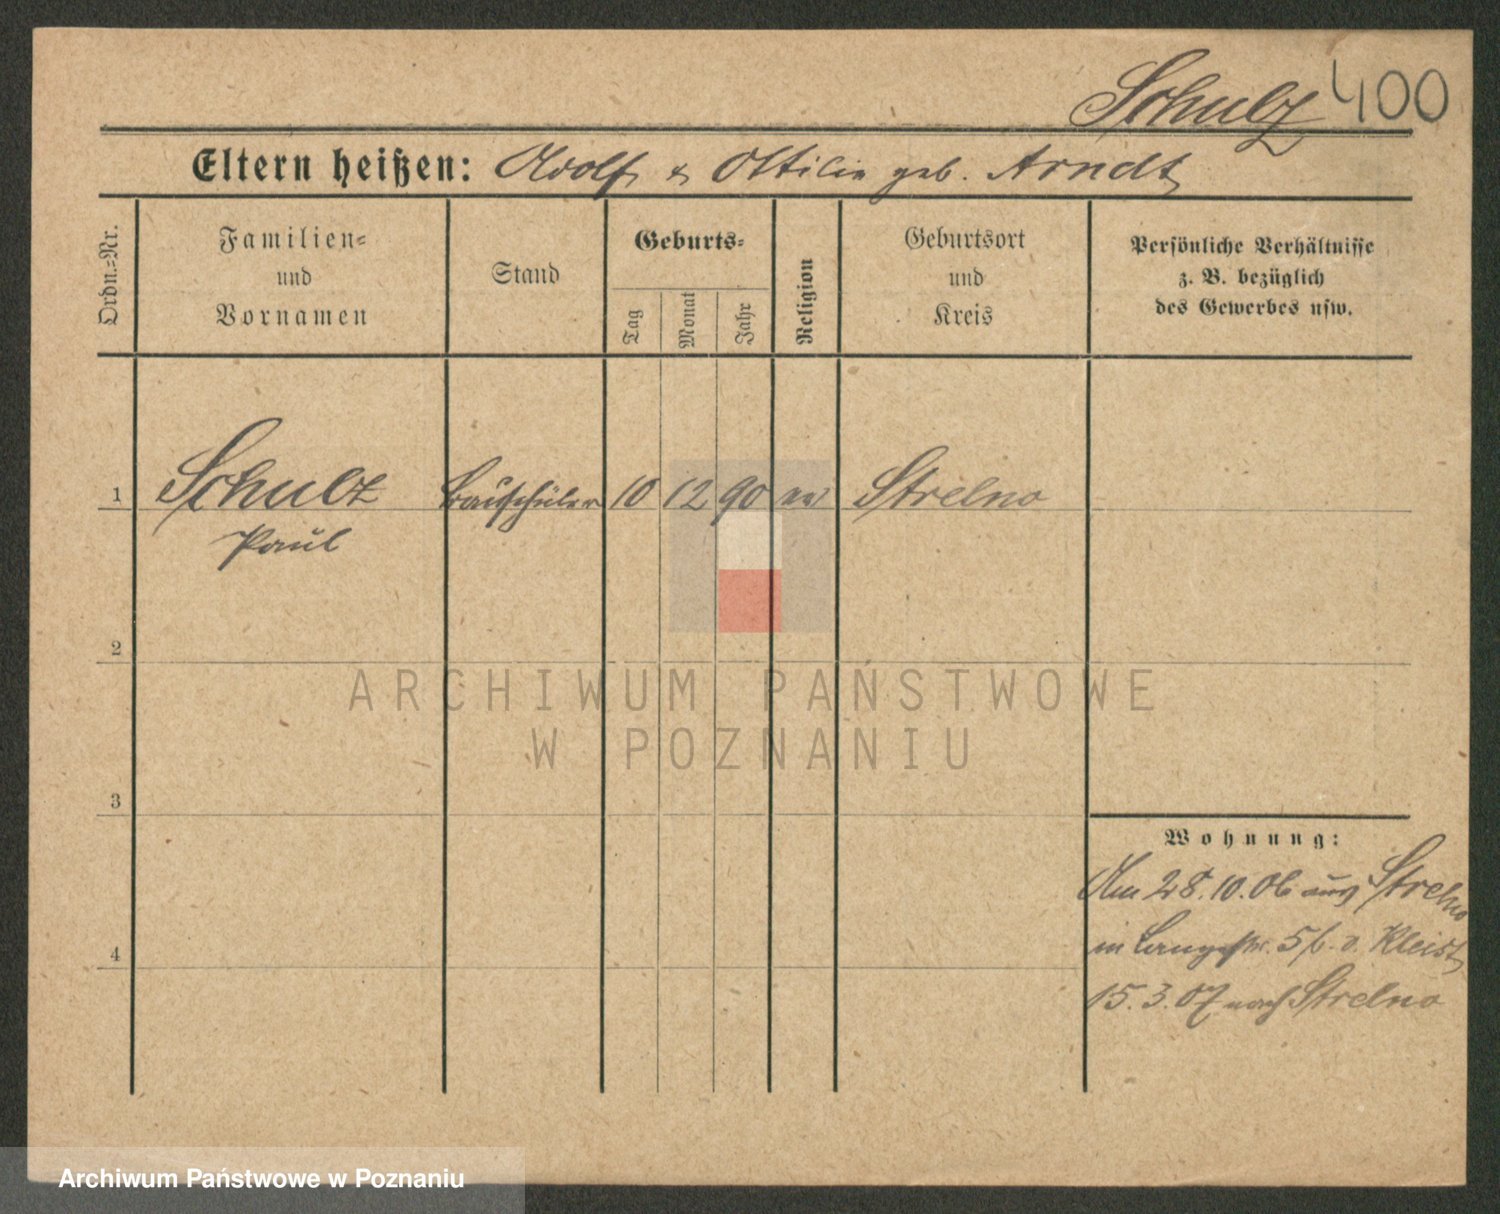 Schulz 400
Eltern heißen: Adolf & Ottilie geb. Arndt
Ordn.-Nr.
Familien-
und
Vornamen
Stand
Geburts-
Tag
Monat
Jahr
Religion
Geburtsort
und
Kreis
Persönliche Verhältnisse
z. B. bezüglich
des Gewerbes usw.
1 Schulz Bauschüler 10 12 90 ev Strelno
Paul
2
3
4
Wohnung:
Am 28.10.06 aus Strelno
in Langestr. 5 b. v. Kleist
15.3.07 nach Strelno
ARCHIWUM PAŃSTWOWE
W POZNANIU
Archiwum Państwowe w Poznaniu